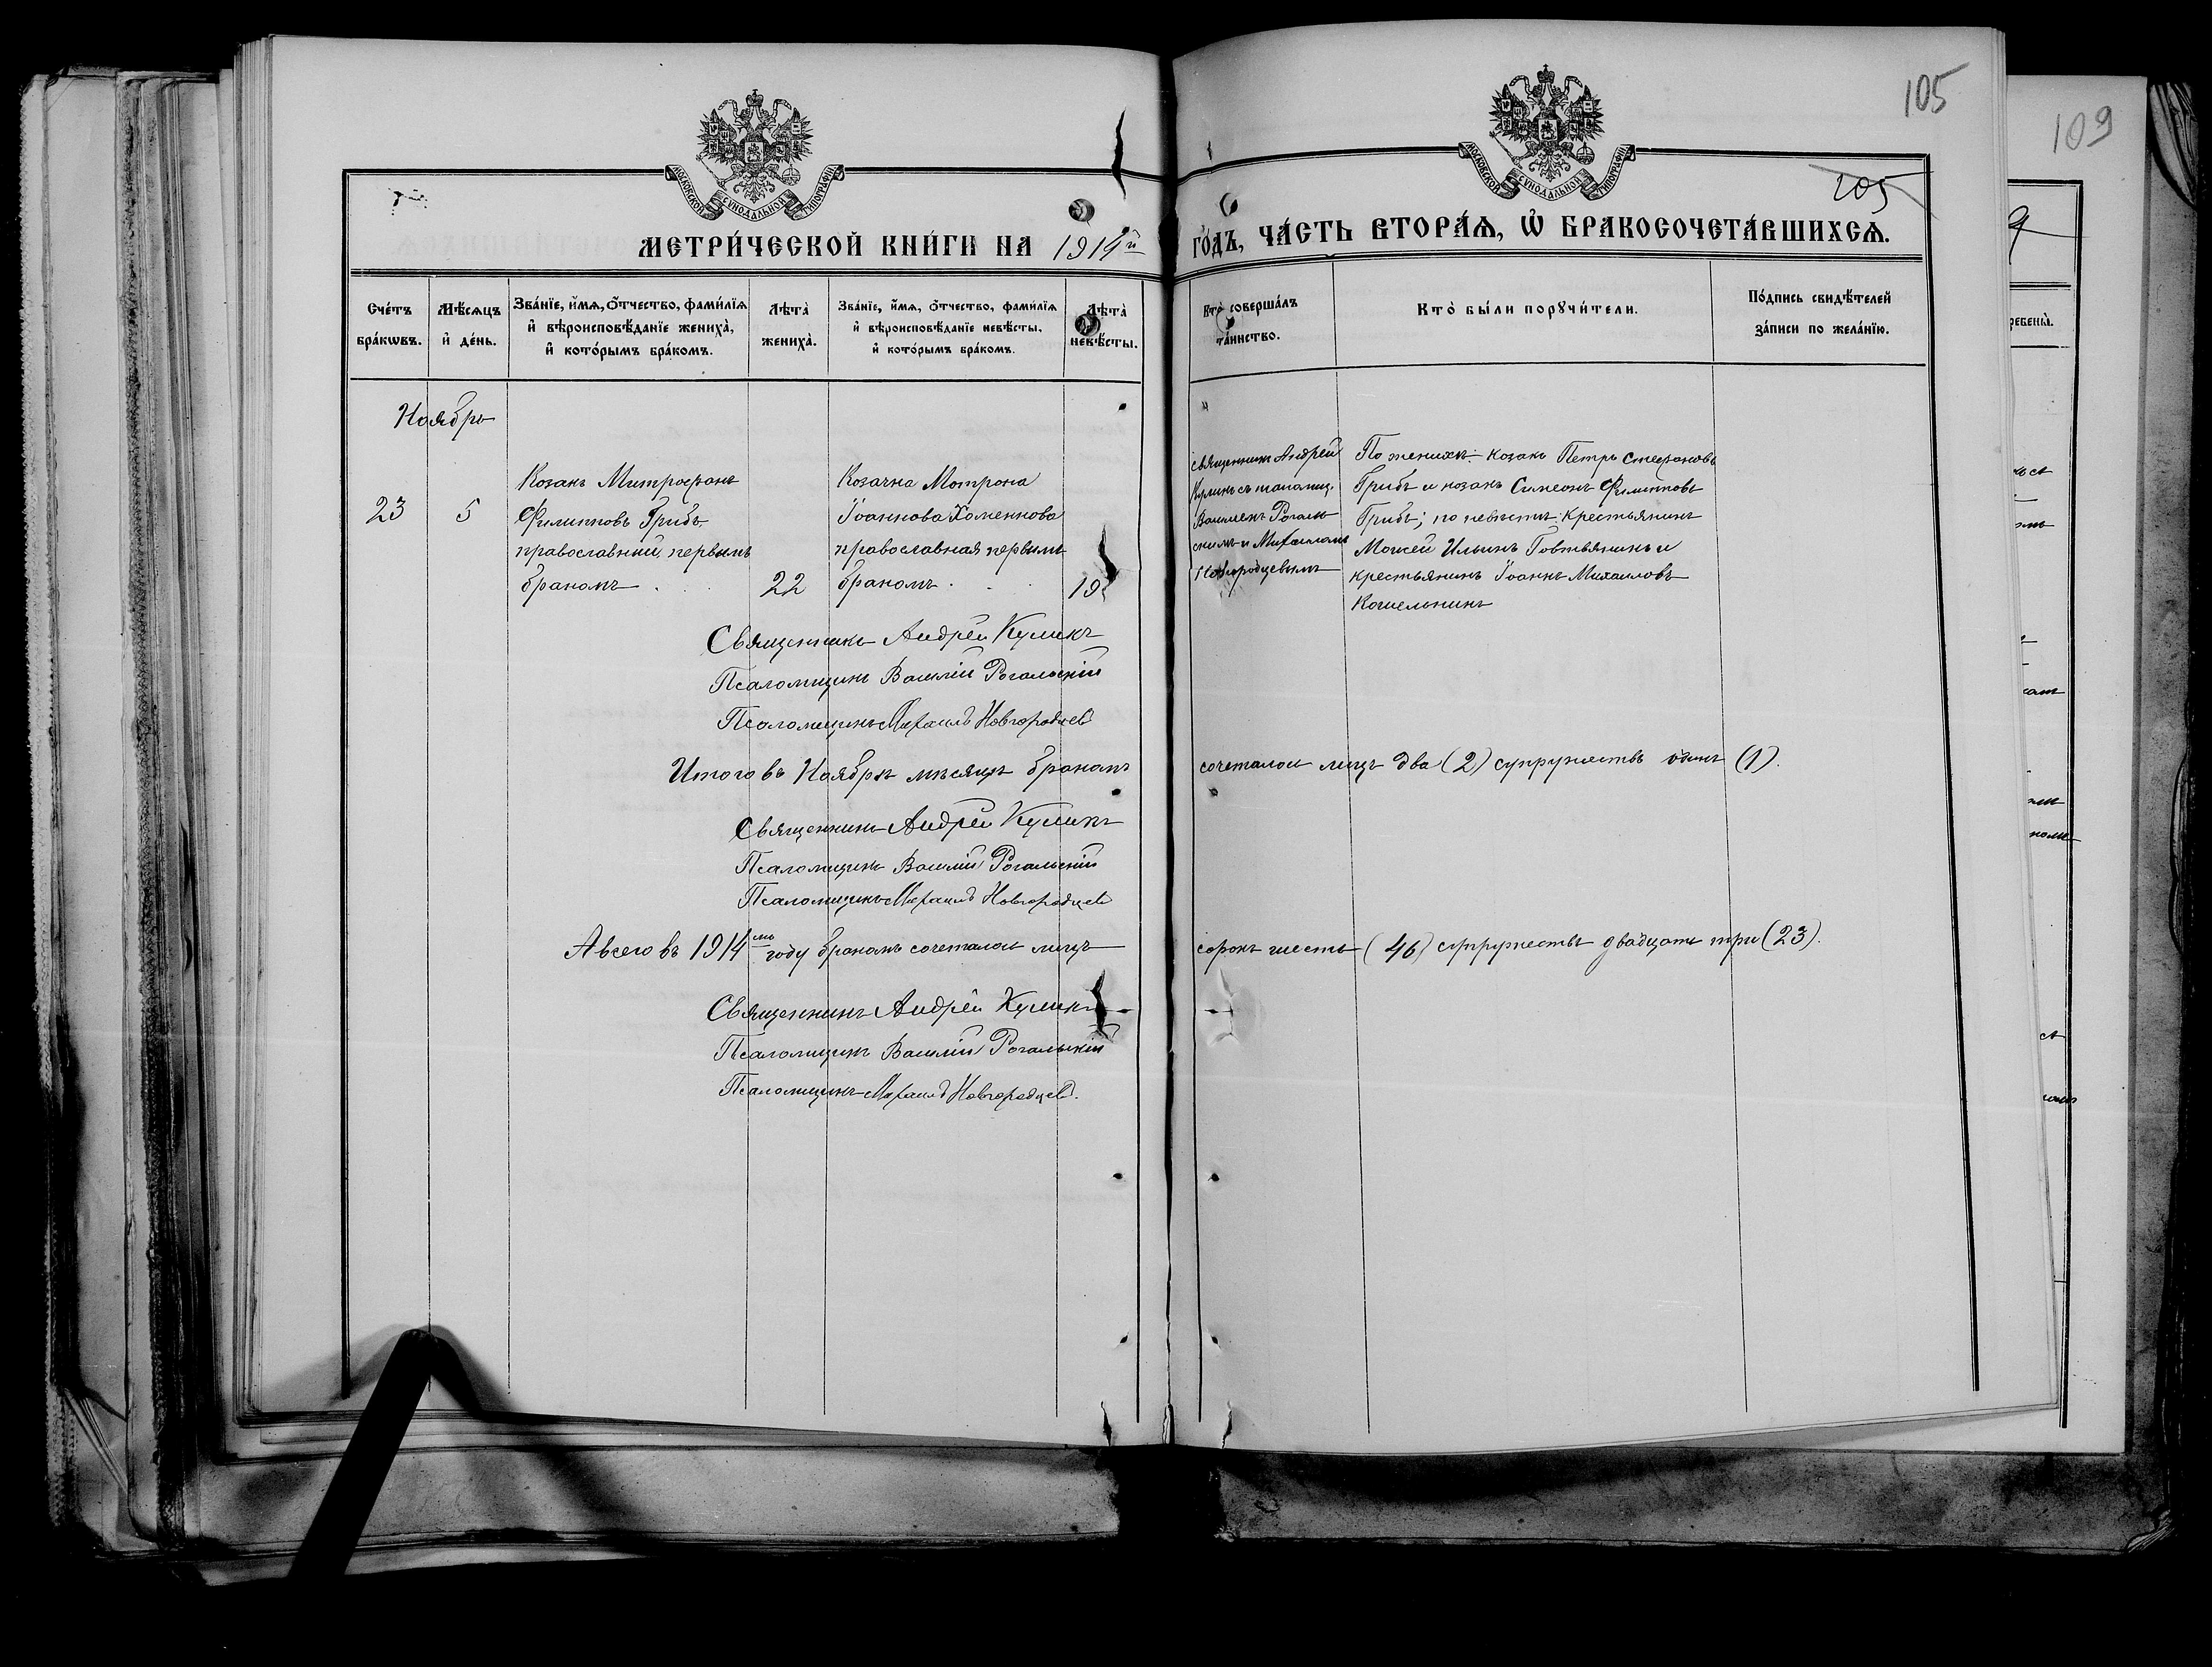 105
109
105
МОСКОВСКОЙ СѴНОДАЛЬНОЙ ТИПОГРАФІИ
МОСКОВСКОЙ СѴНОДАЛЬНОЙ ТИПОГРАФІИ
МЕТРИ́ЧЕСКОЙ КНИ́ГИ НА 1914й
ГО́ДЪ, ЧА́СТЬ ВТОРА́Ѧ, Ѡ҆ БРАКОСОЧЕТА́ВШИХСѦ.
Сче́тъ
бра́кѡвъ.
Мѣ́сѧцъ
и҆ де́нь.
Зва́нїе, и҆́мѧ, ѻ҆́тчество, фами́лїѧ
и҆ вѣроисповѣ́данїе жениха̀,
и҆ кото́рымъ бра́комъ.
Лѣта̀
жениха̀.
Зва́нїе, и҆́мѧ, ѻ҆́тчество, фами́лїѧ
и҆ вѣроисповѣ́данїе невѣ́сты,
и҆ кото́рымъ бра́комъ.
Лѣта̀
невѣ́сты.
Кто̀ соверша́лъ
та́инство.
Кто̀ бы́ли порꙋчи́тели.
По́дпись свидѣ́телей
за́писи по жела́нїю.
Ноябрь
23
5
Козакъ Митрофанъ
Филипповъ Грибъ
православный, первымъ
бракомъ
22
Козачка Мотрона
Іоаннова Хоменкова
православная первымъ
бракомъ
19
Священникъ Андрей
Куликъ съ псаломщ.
Василіемъ Рогаль
скимъ и Михаиломъ
Новгородцевымъ
По женихѣ: козакъ Петръ Стефановъ
Грибъ и козакъ Симеонъ Филипповъ
Грибъ; по невѣстѣ: крестьянинъ
Моисей Ильинъ Говтвянинъ и
крестьянинъ Іоаннъ Михаиловъ
Кошельникъ
Священникъ Андрей Куликъ
Псаломщикъ Василій Рогальскій
Псаломщикъ Михаилъ Новгородцев
Итого въ Ноябрѣ мѣсяцѣ бракомъ сочеталось лицъ два (2) супружествъ одинъ (1).
Священникъ Андрей Куликъ
Псаломщикъ Василій Рогальскій
Псаломщикъ Михаилъ Новгородцев
А всего въ 1914мъ году бракомъ сочеталось лицъ сорокъ шесть (46) супружествъ двадцать три (23).
Священникъ Андрей Куликъ
Псаломщикъ Василій Рогальскій
Псаломщикъ Михаилъ Новгородцев.